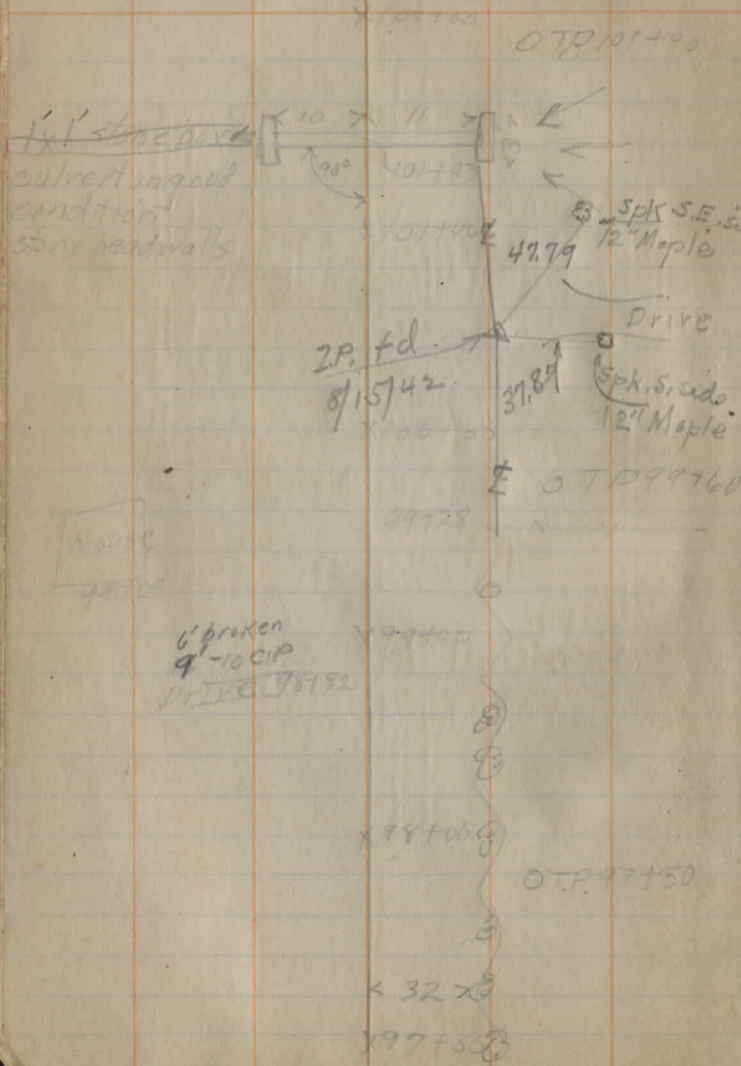 X102+00
O T.P. 101+90
1'x1' stone box
culvert in good
condition
stone headwalls
10
11
3
90°
101+43
X101+00
Spk. S.E. si
12" Maple
47.79
Drive
I.P. fd.
8/15/42
37.87
Spk. S. side
12" Maple
X100+00
O T.P. 99+60
99+28
House
6' broken
9'-10 CIP
Drive 98+82
X99+00
X98+00
O T.P. 97+50
< 32 >
X97+00